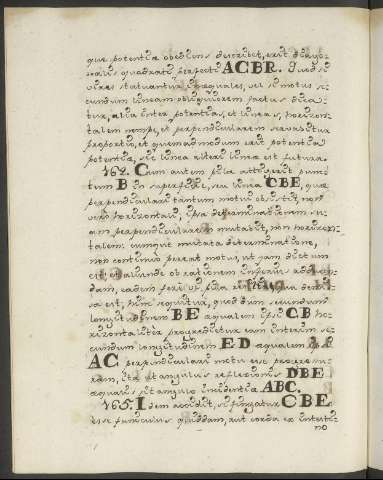 que potentiæ obediens describet, erit diago-
nalis quadrati perfecti ACBR. Quod si
vires statuantur inæquales, vel si motus se-
cundum lineam obliquiorem factus dica-
tur, alia inter potentias, et lineas, horizon-
talem nempe, et perpendicularem servabitur
proportio, et quemadmodum erit potentia
potentiæ, sic linea alteri lineæ est futura.
162. Cum autem pila attigerit punc-
tum B in superficie, seu linea CBE, quæ
perpendiculari tantum motui obsistit, non
vero horizontali, ipsa determinationem su-
am perpendicularem mutabit, non horizon-
talem: cumque mutata determinatione,
non continuo pereat motus, ut jam dictum
est, et aliunde ob rationem inferius adducen-
dam, eadem fere vis pila
sa est, hinc sequitur, quod dum secundum
longitudinem BE æqualem ipsi CB ho-
rizontaliter progredietur eam interim se-
cundum longitudinem ED æqualem ipsi
AC perpendiculari motu est progressu-
ram, ita et angulus reflexionis DBE
æqualis sit angulo incidentiæ ABC.
163. Idem accidit, si fingatur CBE
esse funiculus quidam, aut corda ex intesti-
no